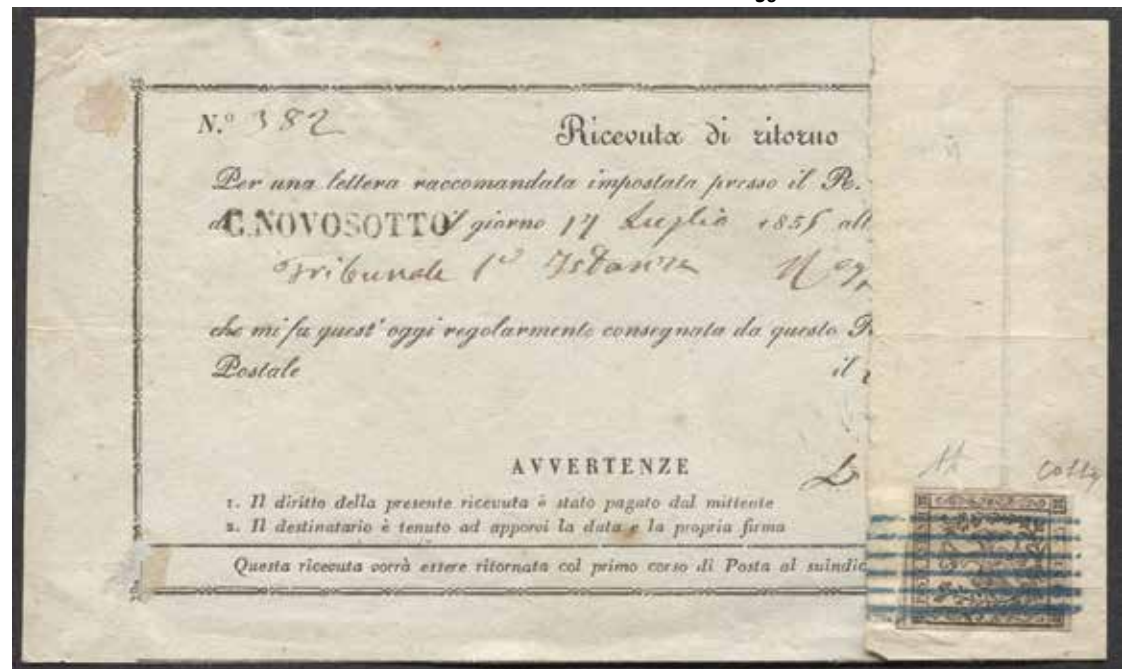 N.º 382
Ricevuta di ritorno
Per una lettera raccomandata impostata presso il R.
C.NOVOSOTTO il giorno 17 Luglio 1855 all
Tribunale 1ª Istanza
che mi fu quest' oggi regolarmente consegnata da questo
Postale il
AVVERTENZE
1. Il diritto della presente ricevuta è stato pagato dal mittente
2. Il destinatario è tenuto ad apporvi la data e la propria firma
Questa ricevuta vorrà essere ritornata col primo corso di Posta al suindic